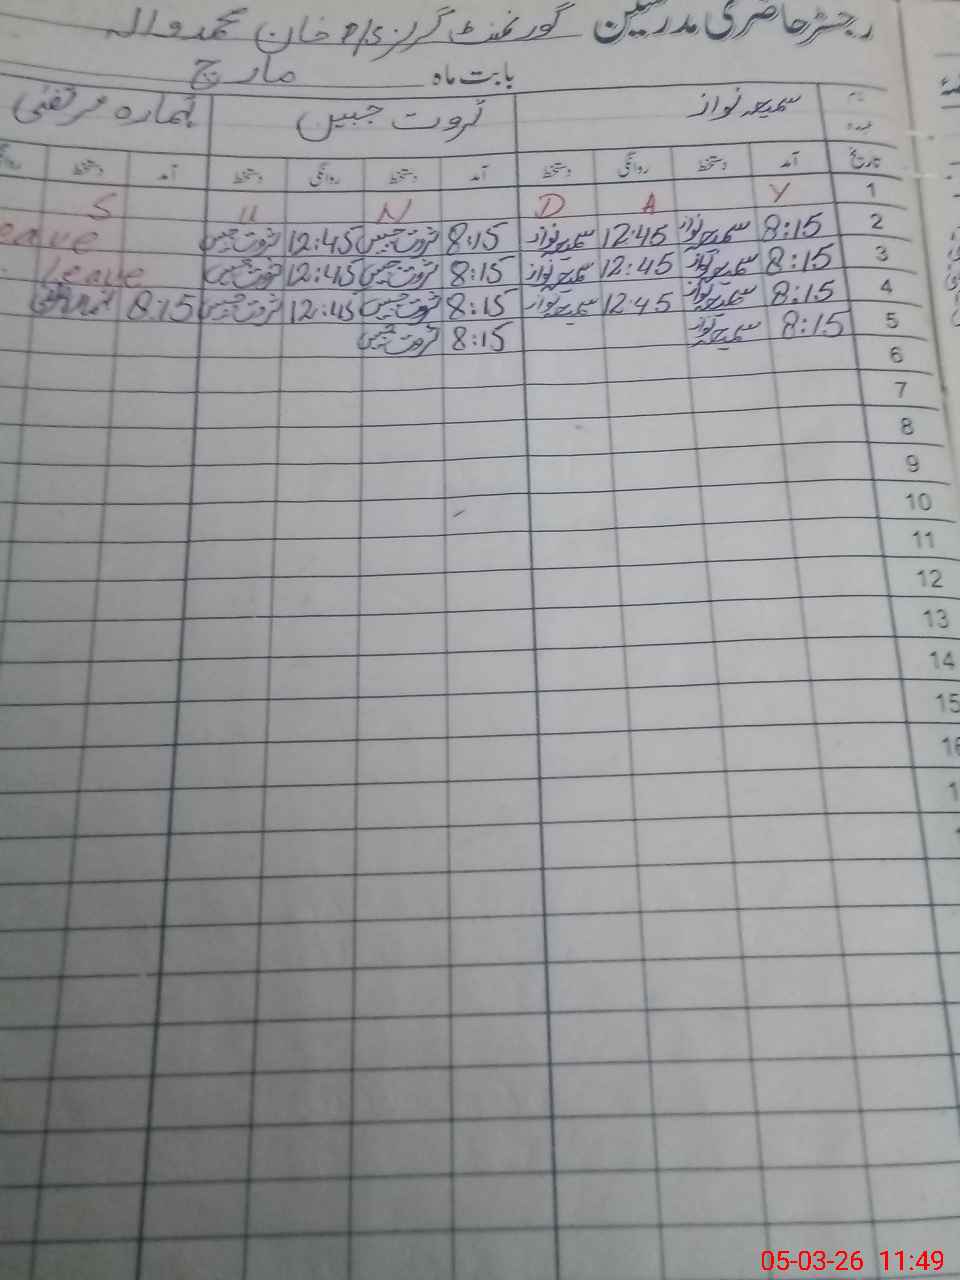 رجسٹر حاضری مدرسین گورنمنٹ گرلز P/S خان محمد والہ
بابت ماہ مارچ
نام سمیعہ نواز ثروت جبین عمارہ مرتضیٰ
عہدہ
تاریخ آمد دستخط روانگی دستخط آمد دستخط روانگی دستخط آمد دستخط
1 Y A D N U S
2 8:15 سمیعہ نواز 12:45 سمیعہ نواز 8:15 ثروت جبین 12:45 ثروت جبین
3 8:15 سمیعہ نواز 12:45 سمیعہ نواز 8:15 ثروت جبین 12:45 ثروت جبین Leave
4 8:15 سمیعہ نواز 12:45 سمیعہ نواز 8:15 ثروت جبین 12:45 ثروت جبین 8:15
5 8:15 سمیعہ نواز 8:15 ثروت جبین
6
7
8
9
10
11
12
13
14
15
05-03-26 11:49